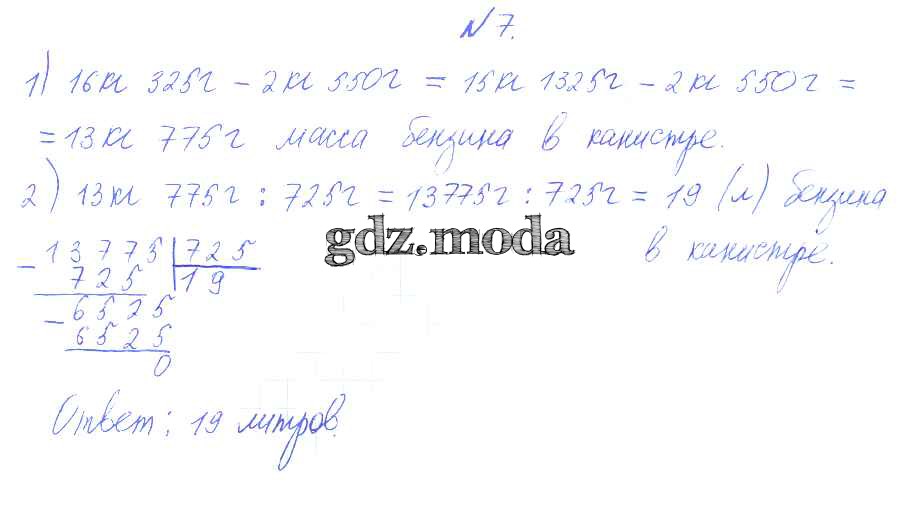 N 7.
1) 16кг 325г - 2кг 550г = 15кг 1325г - 2кг 550г =
= 13кг 775г масса бензина в канистре.
2) 13кг 775г : 725г = 13775г : 725г = 19 (л) бензина
в канистре.
gdz.moda
- 13775 | 725
725 | 19
- 6525
6525
0
Ответ: 19 литров.